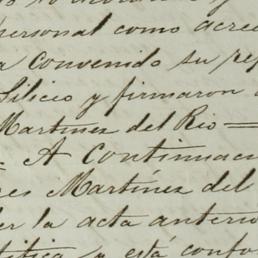 personal como acre
a convenido su rep
Silicio y firmaron
Martinez del Rio
A Continuac
es Martínez del
er la acta anterio
y está confo